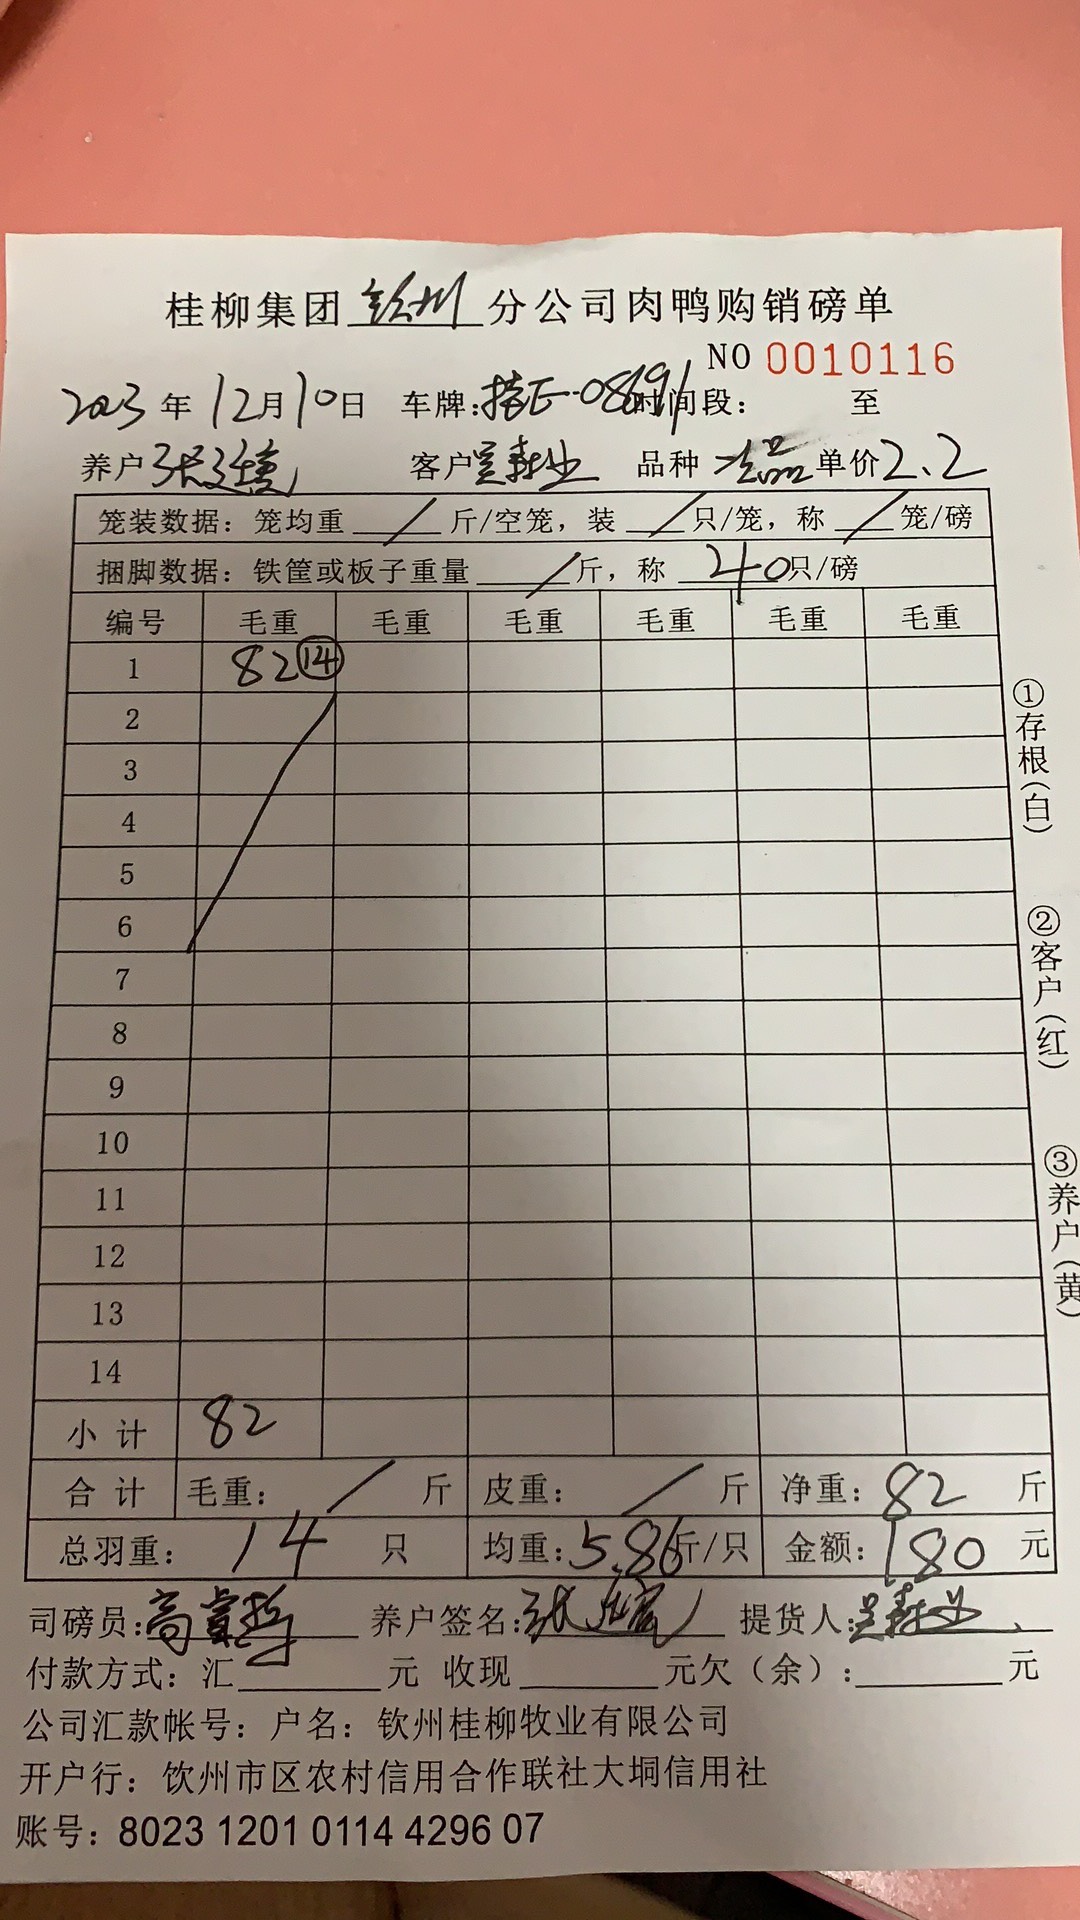 桂柳集团钦州分公司肉鸭购销磅单
NO 0010116
2023年12月10日 车牌: 时间段: 至
养户 客户 品种 单价2.2
笼装数据:笼均重 / 斤/空笼,装 / 只/笼,称 / 笼/磅
捆脚数据:铁筐或板子重量 / 斤,称 40只/磅
编号 毛重 毛重 毛重 毛重 毛重 毛重
1 82⑭
2
3
4
5
6
7
8
9
10
11
12
13
14
小计 82
合计 毛重: / 斤 皮重: / 斤 净重:82 斤
总羽重:14 只 均重:5.86斤/只 金额:180 元
司磅员: 养户签名: 提货人:
付款方式:汇 元 收现 元欠(余): 元
公司汇款帐号:户名:钦州桂柳牧业有限公司
开户行:饮州市区农村信用合作联社大垌信用社
账号:8023 1201 0114 4296 07
①存根(白)
②客户(红)
③养户(黄)